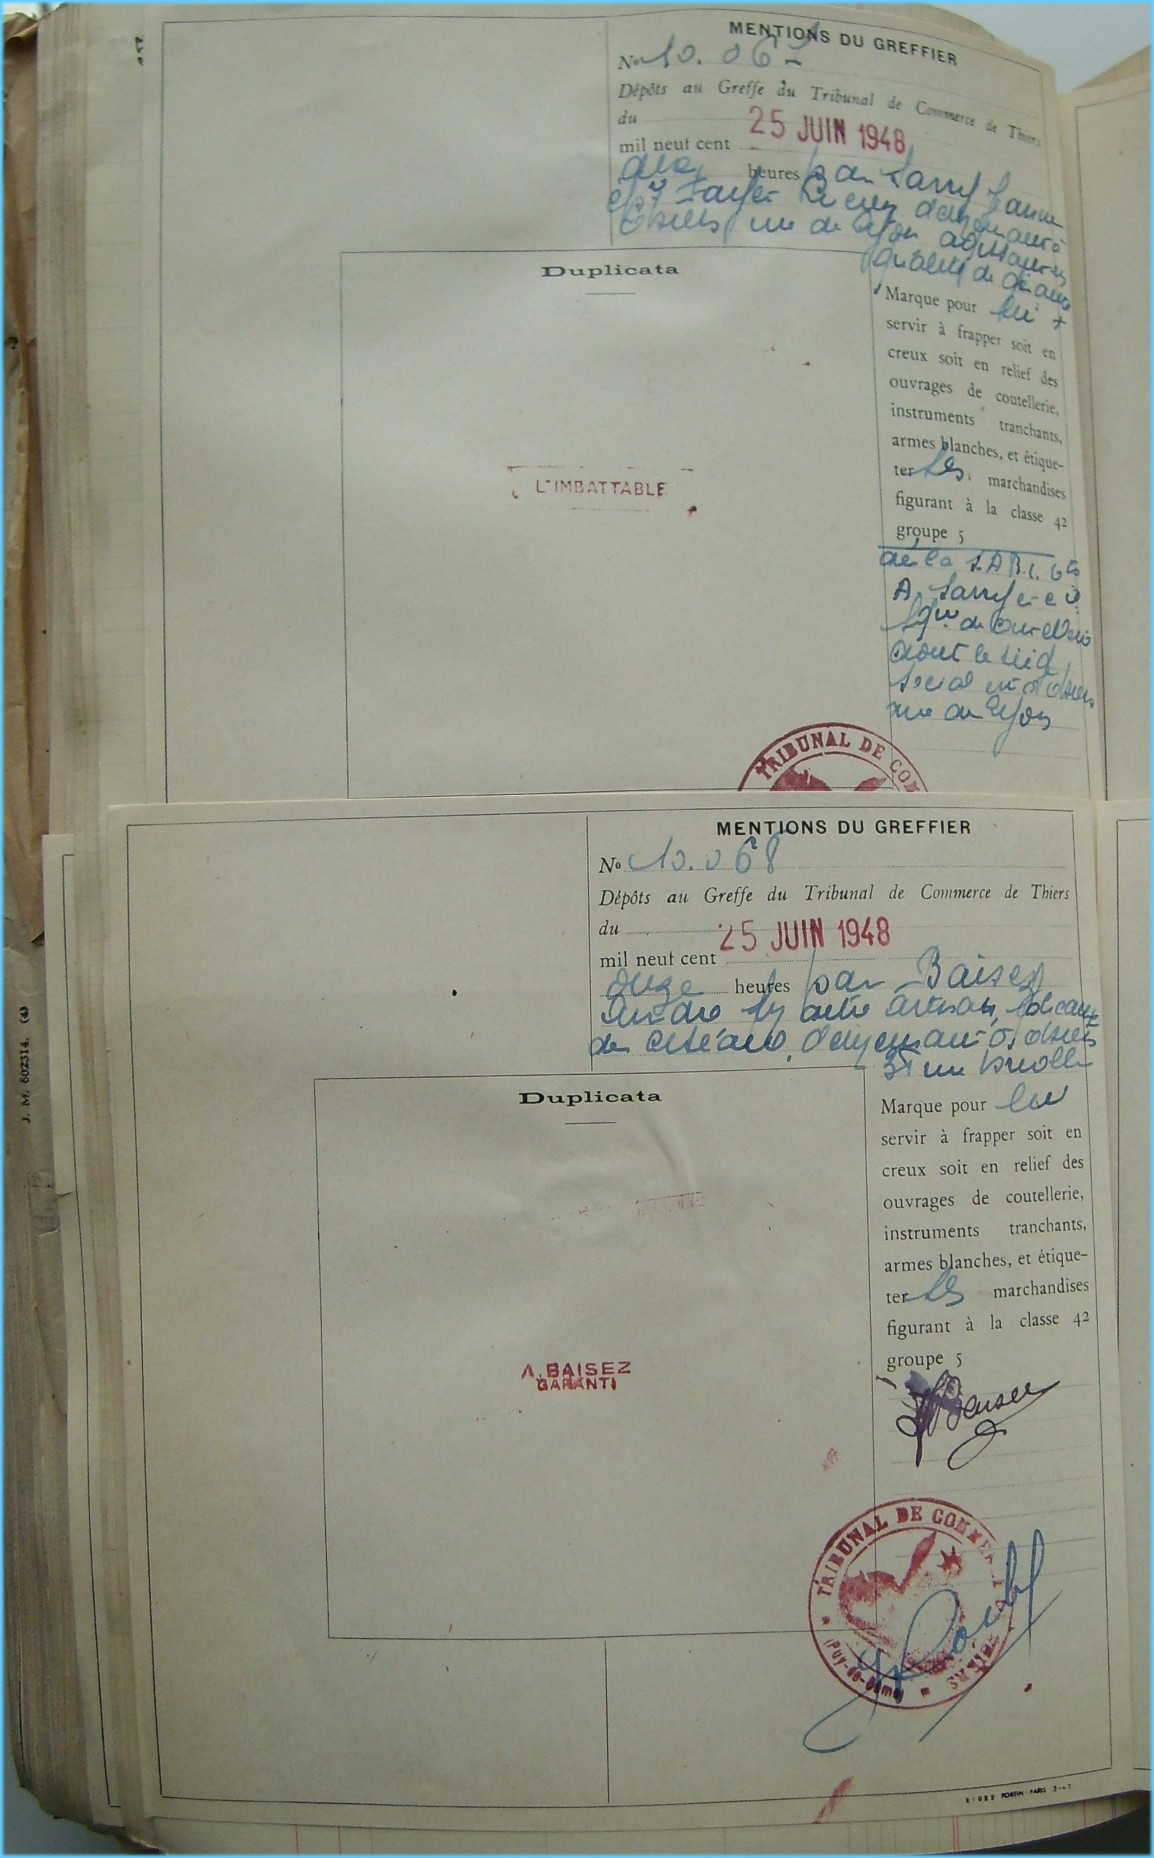 MENTIONS DU GREFFIER
No 10.067
Dépôts au Greffe du Tribunal de Commerce de Thiers
du
25 JUIN 1948
mil neuf cent
heures par Jeanne
rue de Lyon
qualité de
Duplicata
Marque pour lui +
servir à frapper soit en
creux soit en relief des
ouvrages de coutellerie,
instruments tranchants,
armes blanches, et étique-
ter ses marchandises
figurant à la classe 42
groupe 5
L'IMBATTABLE
de la S.A.R.L. Ets
A.
dont le siège
social est à
rue de Lyon
TRIBUNAL DE COM
MENTIONS DU GREFFIER
No 10.068
Dépôts au Greffe du Tribunal de Commerce de Thiers
du
25 JUIN 1948
mil neuf cent
onze heures par Baisez
André artisan, fabricant
de ciseaux, demeurant à
37 rue
Duplicata
Marque pour lui
servir à frapper soit en
creux soit en relief des
ouvrages de coutellerie,
instruments tranchants,
armes blanches, et étique-
ter ses marchandises
figurant à la classe 42
groupe 5
A. BAISEZ
GARANTI
Baisez
TRIBUNAL DE COMMERCE
THIERS
(Puy-de-Dôme)
J. M. 602314. (4)
PORTIN PARIS 3-47